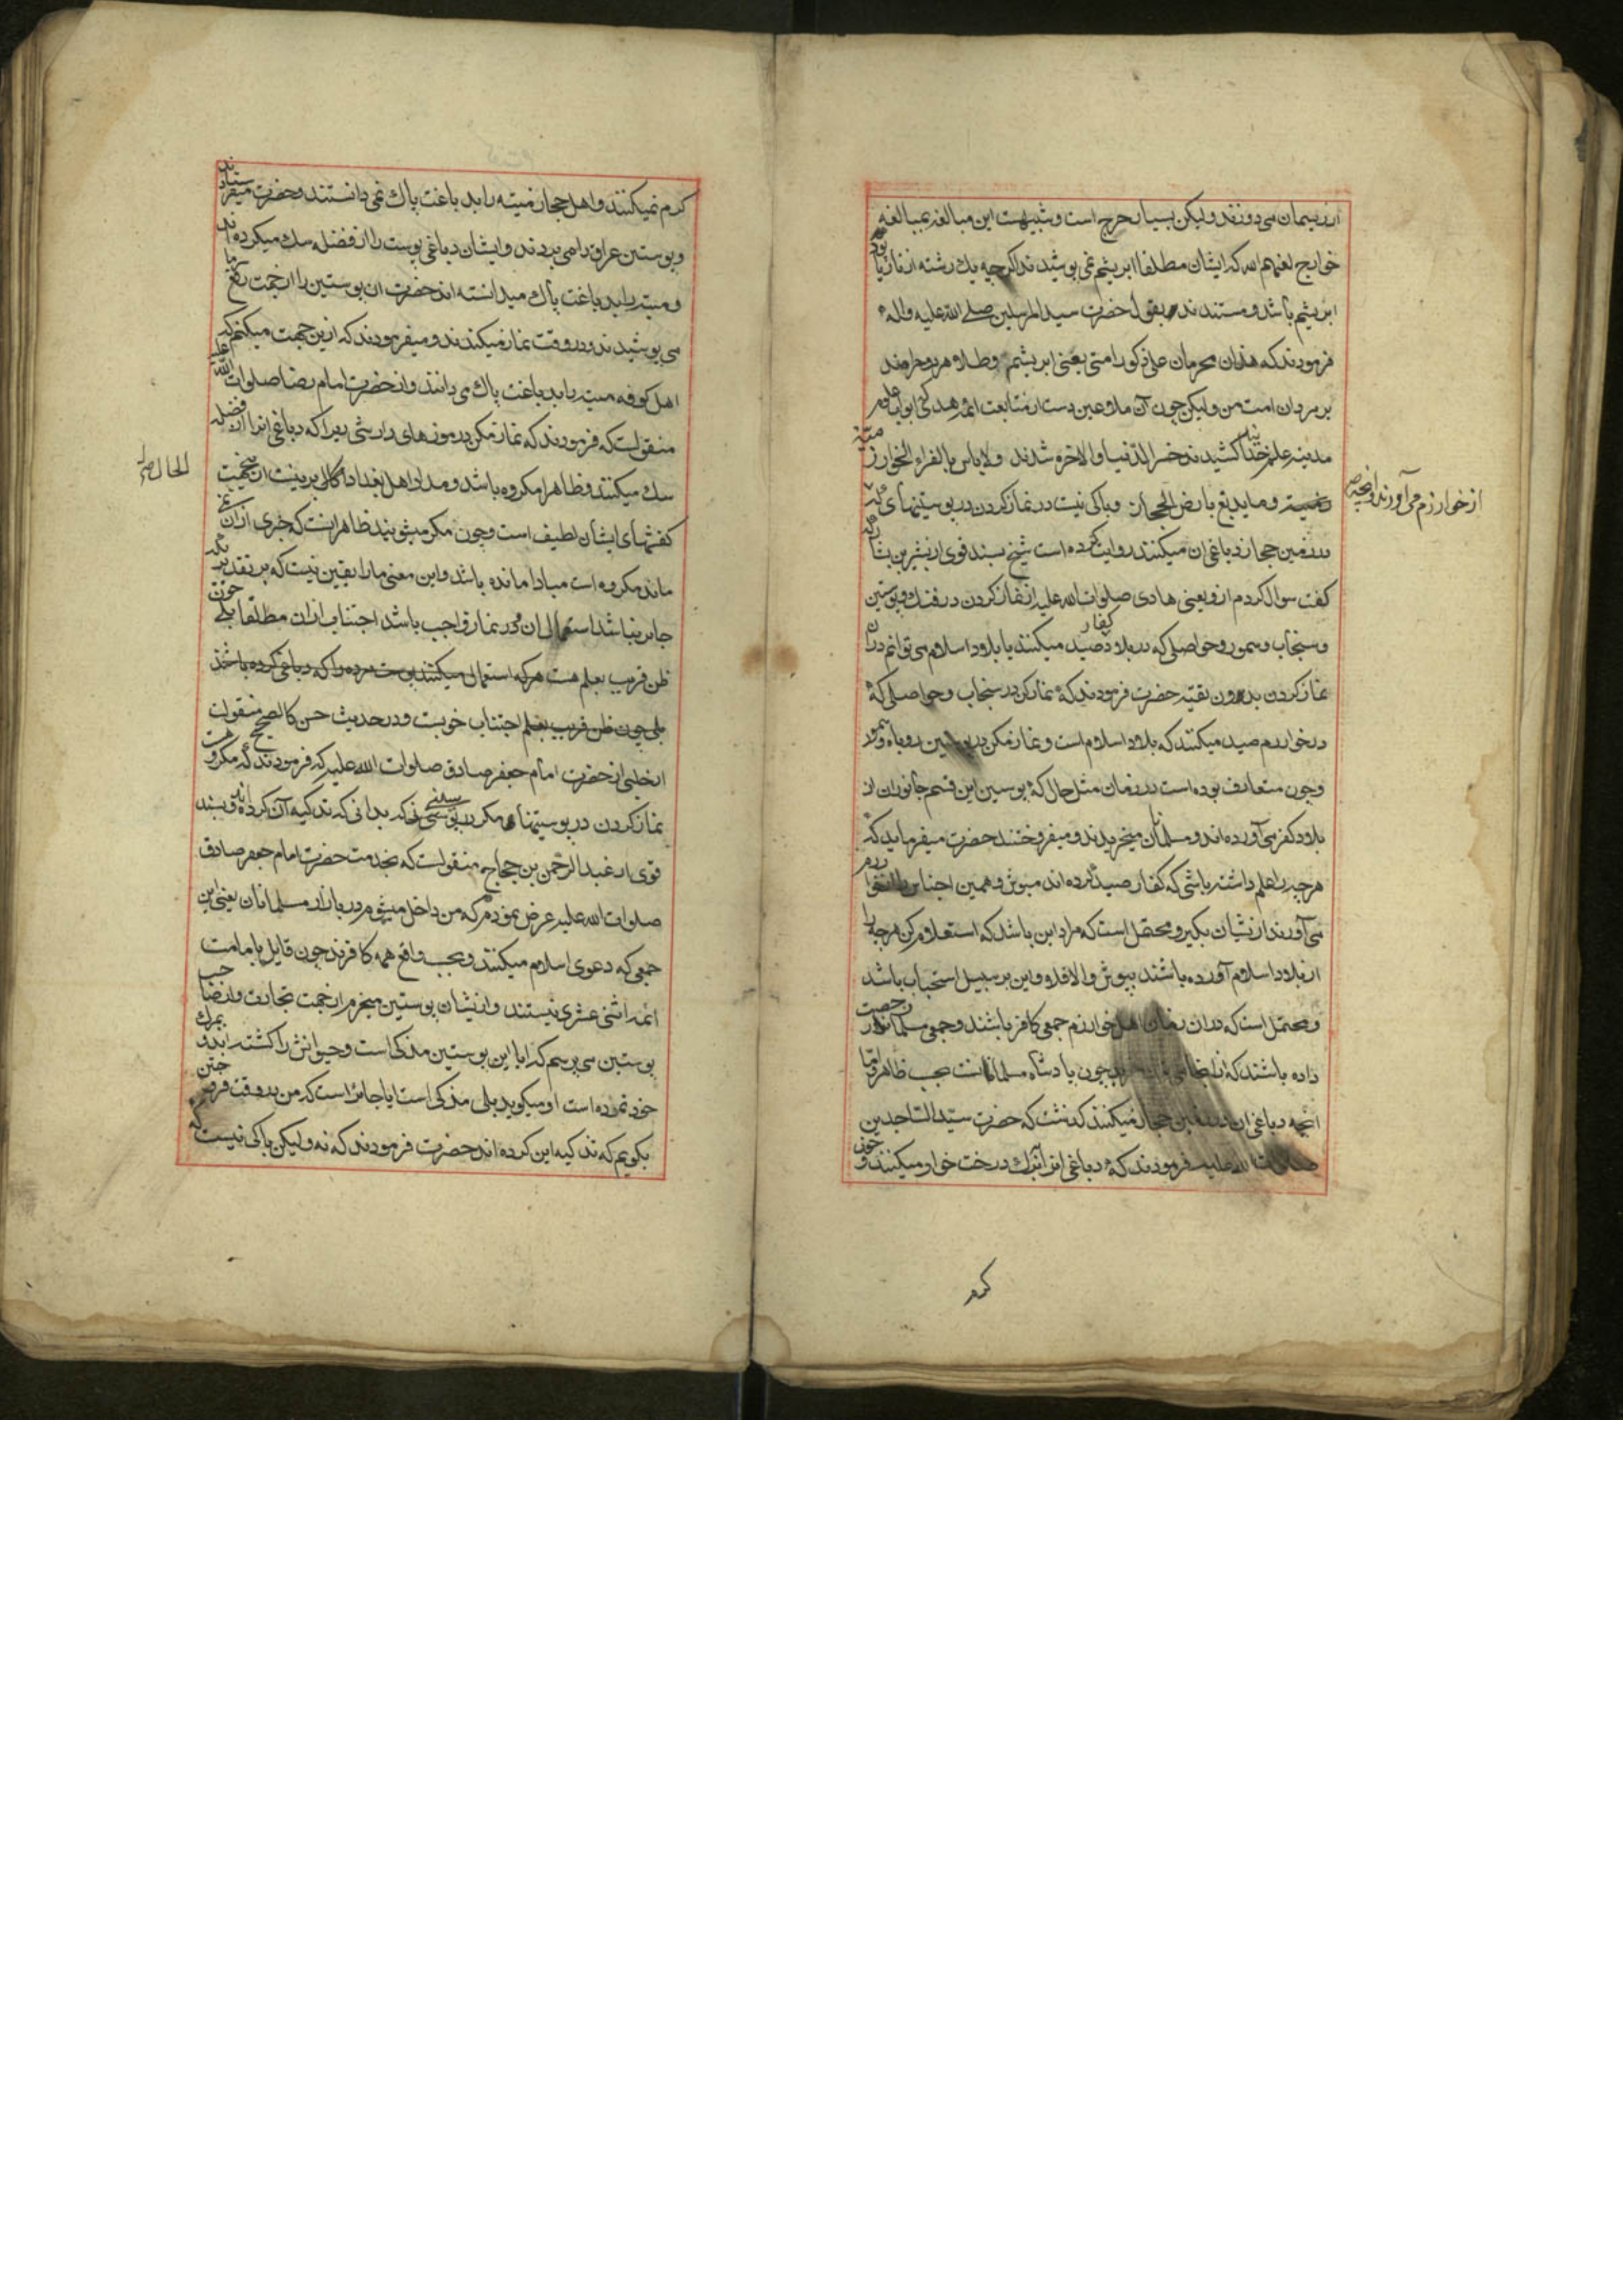 از ریسمان می دوزند و لیکن بسیار حرج است و شبیهست این مبالغه بمبالغه
خوارج لعنهم الله که ایشان مطلقا ابریشم نمی پوشیدند اگرچه یک رشته از تار یا پود
ابریشم باشد و مستندند بقول حضرت سید المرسلین صلی الله علیه و اله
فرمودند که هذان محرمان علی ذکور امتی یعنی ابریشم و طلا هر دو حرامند
بر مردان امت من و لیکن چون آن ملاعین دست از متابعت ائمه هدی که ابواب علوم
مدینه علمند کشیدند خسر الدنیا و الاخره شدند ولا باس بالفراء الخوارزمیه
و ما یدبغ بارض الحجاز و باکی نیست در نماز کردن در پوستینهای که
از خوارزم می آورند و آنچه
در زمین حجاز دباغی ان میکنند روایت کرده است شیخ بسند قوی از بشیر بن بشار که
گفت سوال کردم از و یعنی هادی صلوات الله علیه از نماز کردن در فنک و پوستین
و سنجاب و سمور و حواصلی که در بلاد کفار صید میکنند یا بلاد اسلام می توانم در ان
نماز کردن بدون تقیه حضرت فرمودند که نماز کن در سنجاب و حواصلی که
در خوارزم صید میکنند که بلاد اسلام است و نماز مکن در پوستین روباه و سمور
و چون متعارف بوده است در زمان مثل حال که پوستین این قسم جانوران از
بلاد کفر می آورده اند و مسلمانان میخریدند و میفروختند حضرت میفرماید که
هر چه را علم داشته باشی که کفار صید کرده اند مپوش و همین اجناس را
می آورند از نشان بگیر و محتمل است که مراد این باشد که استعلام کن هر چه را
از بلاد اسلام آورده باشند بپوش و الا فلا و این بر سبیل استحباب باشد
و محتمل است که در ان زمان اهل خوارزم جمعی کافر باشند و جمعی مسلمانان رخصت
داده باشند که چون پادشاه مسلمانست بحسب ظاهر و اما
انچه دباغی ان در زمین حجاز میکنند گذشت که حضرت سید الساجدین
صلوات الله علیه فرمودند که دباغی انرا ببرک درخت خوار میکنند و خون
کرم
کرم نمیکنند و اهل حجاز میته را بدباغت پاک نمی دانستند و حضرت میفرستادند
و پوستین عراق را می بردند و ایشان دباغی پوست را از فضله سک میکرده اند
و میته را بدباغت پاک میدانسته اند حضرت ان پوستین را از جهت
می پوشیدند و در وقت نماز میکندند و میفرمودند که ازین جهت میکنم که
اهل کوفه میته را بدباغت پاک می دانند و از حضرت امام رضا صلوات الله علیه
منقولست که فرمودند که نماز مکن در موزهای دارشی زیرا که دباغی انرا از فضله
سک میکنند و ظاهرا مکروه باشد و مدار اهل بغداد برینست
کفشهای ایشان لطیف است و چون مکرر میشویند ظاهرانست که جزوی از ان نمی
ماند مکروه است مبادا مانده باشد و این معنی ما را یقین نیست که بر تقدیر یکه
جایز نباشد استعمال ان در نماز واجب باشد اجتناب از ان مطلقا بلی چون
ظن قریب بعلم هست هر که استعمال میکنند پوست مرده را که دباغی کرده باشند
بلی چون ظن قریب بعلم اجتناب خوبست و در حدیث حسن کالصحیح منقولست
از حلبی از حضرت امام جعفر صادق صلوات الله علیه که فرمودند که مکروهست
نماز کردن در پوستینها مکر در پوستینی که بدانی که تذکیه آن کرده اند و بسند
قوی از عبد الرحمن بن حجاج منقولست که بخدمت حضرت امام جعفر صادق
صلوات الله علیه عرض نمودم که من داخل میشوم در بازار مسلمانان یعنی این
جمعی که دعوی اسلام میکنند و بحسب واقع همه کافرند چون قایل بامامت
ائمه اثنی عشری نیستند و از نشان پوستین میخرم از جهت تجارت و از صاحب
پوستین می پرسم که ایا این پوستین مذکی است و حیوانش را کشته اند و بمرک
خود نمرده است او میکوید بلی مذکی است ایا جایز است که من در وقت فروختن
بکویم که تذکیه این کرده اند حضرت فرمودند که نه و لیکن باکی نیست که